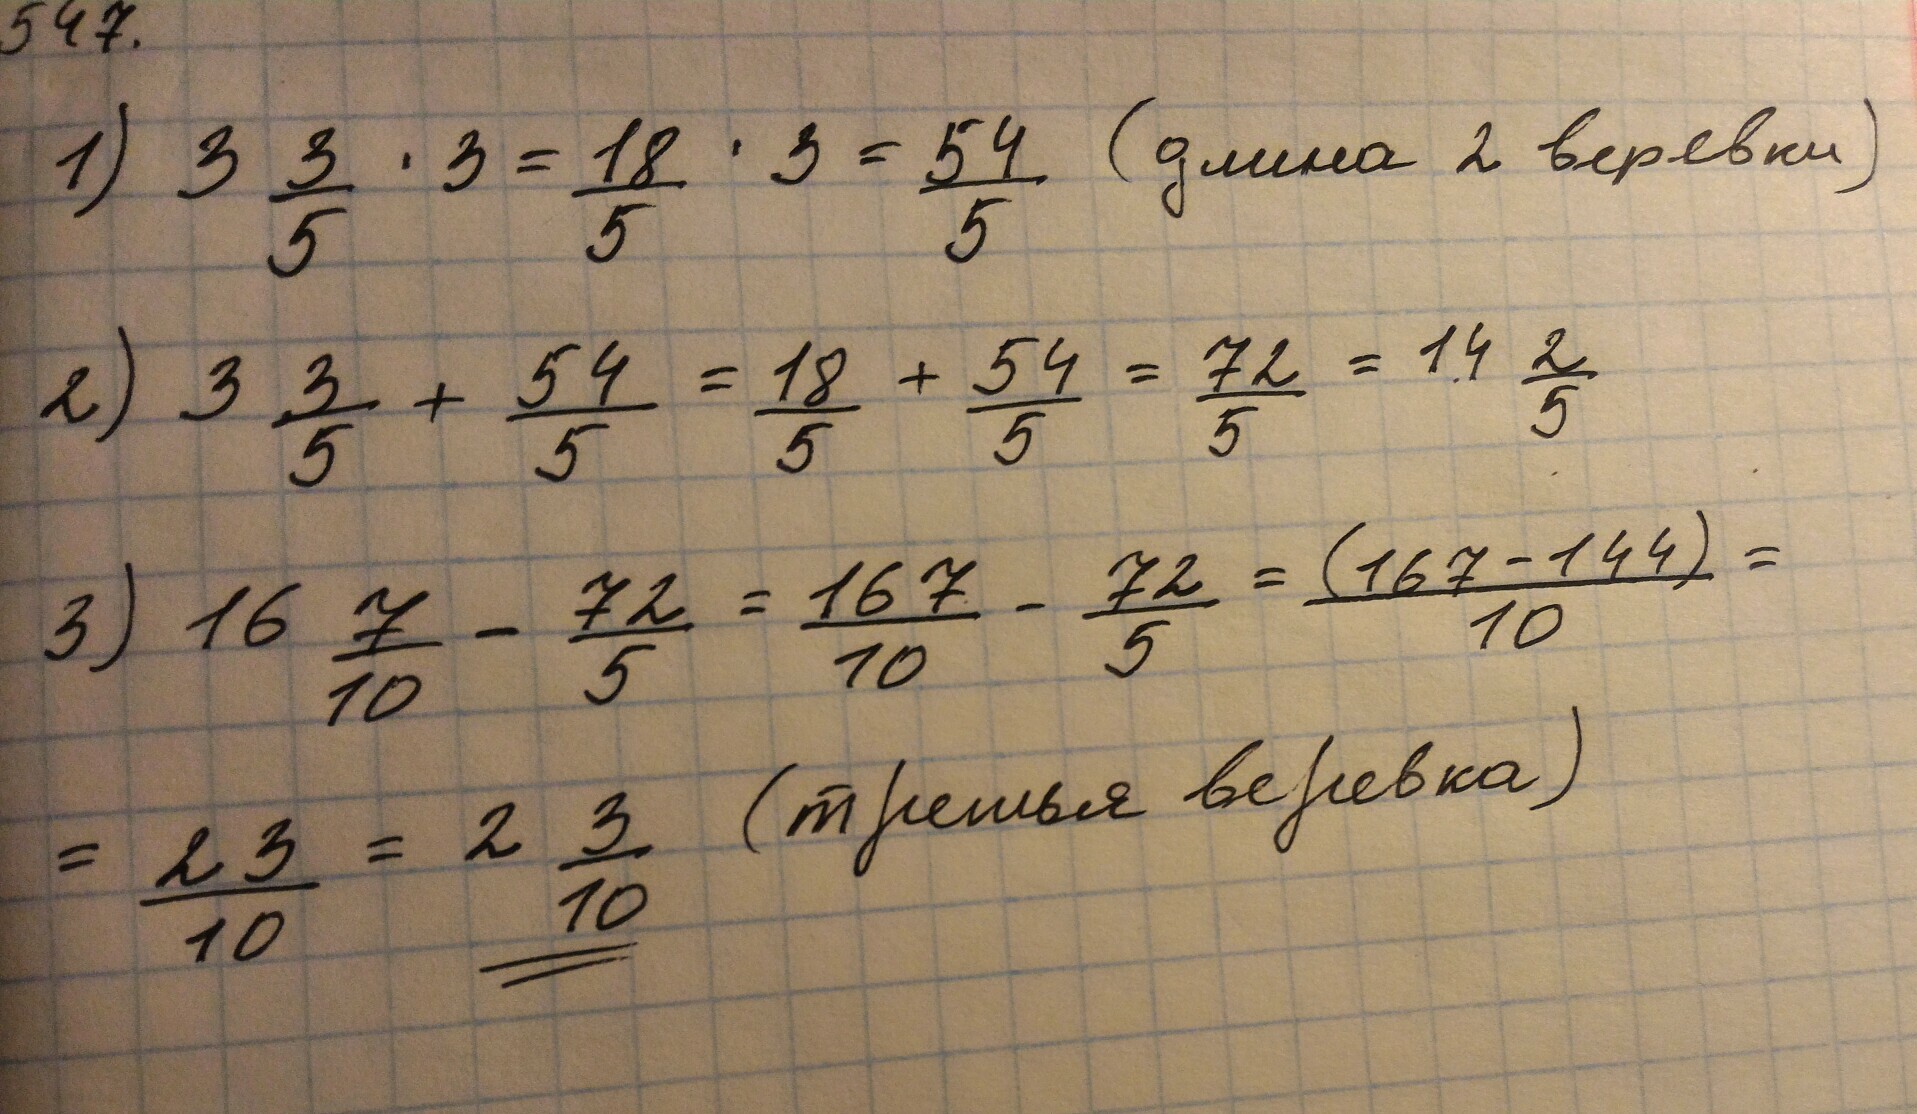 547.
1) 3 3/5 · 3 = 18/5 · 3 = 54/5 (длина 2 веревки)
2) 3 3/5 + 54/5 = 18/5 + 54/5 = 72/5 = 14 2/5
3) 16 7/10 - 72/5 = 167/10 - 72/5 = (167-144)/10 =
= 23/10 = 2 3/10 (третья веревка)